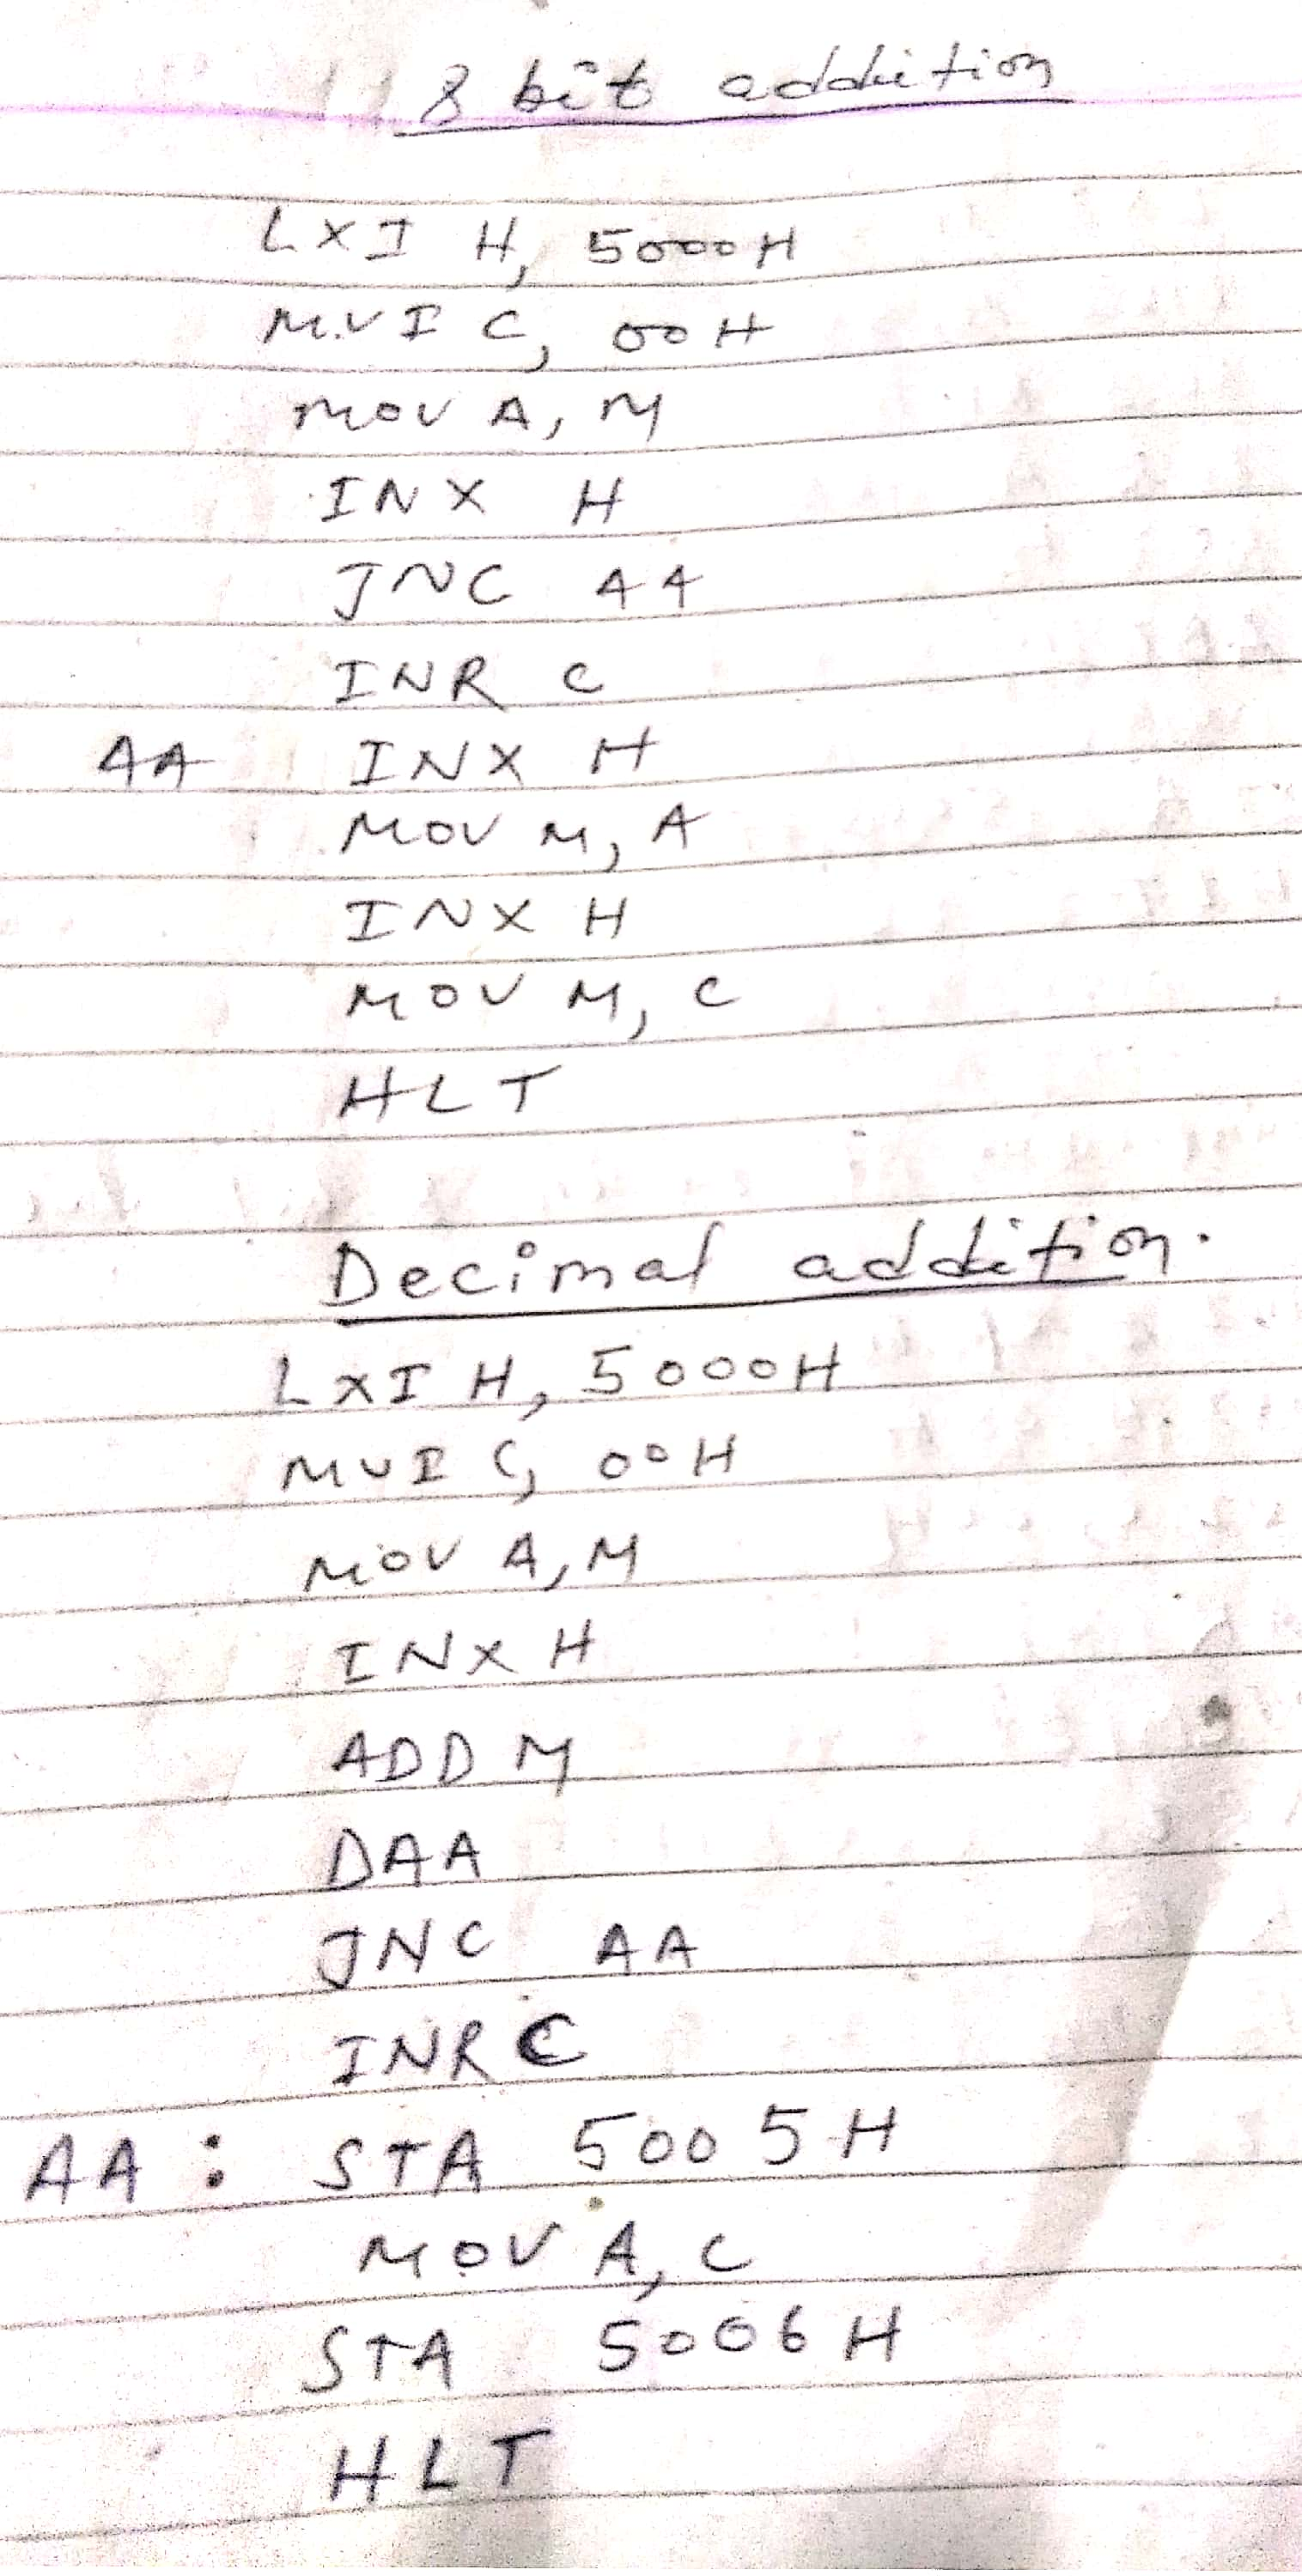 8 bit addition
LXI H, 5000H
MVI C, 00H
MOV A, M
INX H
JNC AA
INR C
AA INX H
MOV M, A
INX H
MOV M, C
HLT
Decimal addition.
LXI H, 5000H
MVI C, 00H
MOV A, M
INX H
ADD M
DAA
JNC AA
INR C
AA : STA 5005H
MOV A, C
STA 5006H
HLT